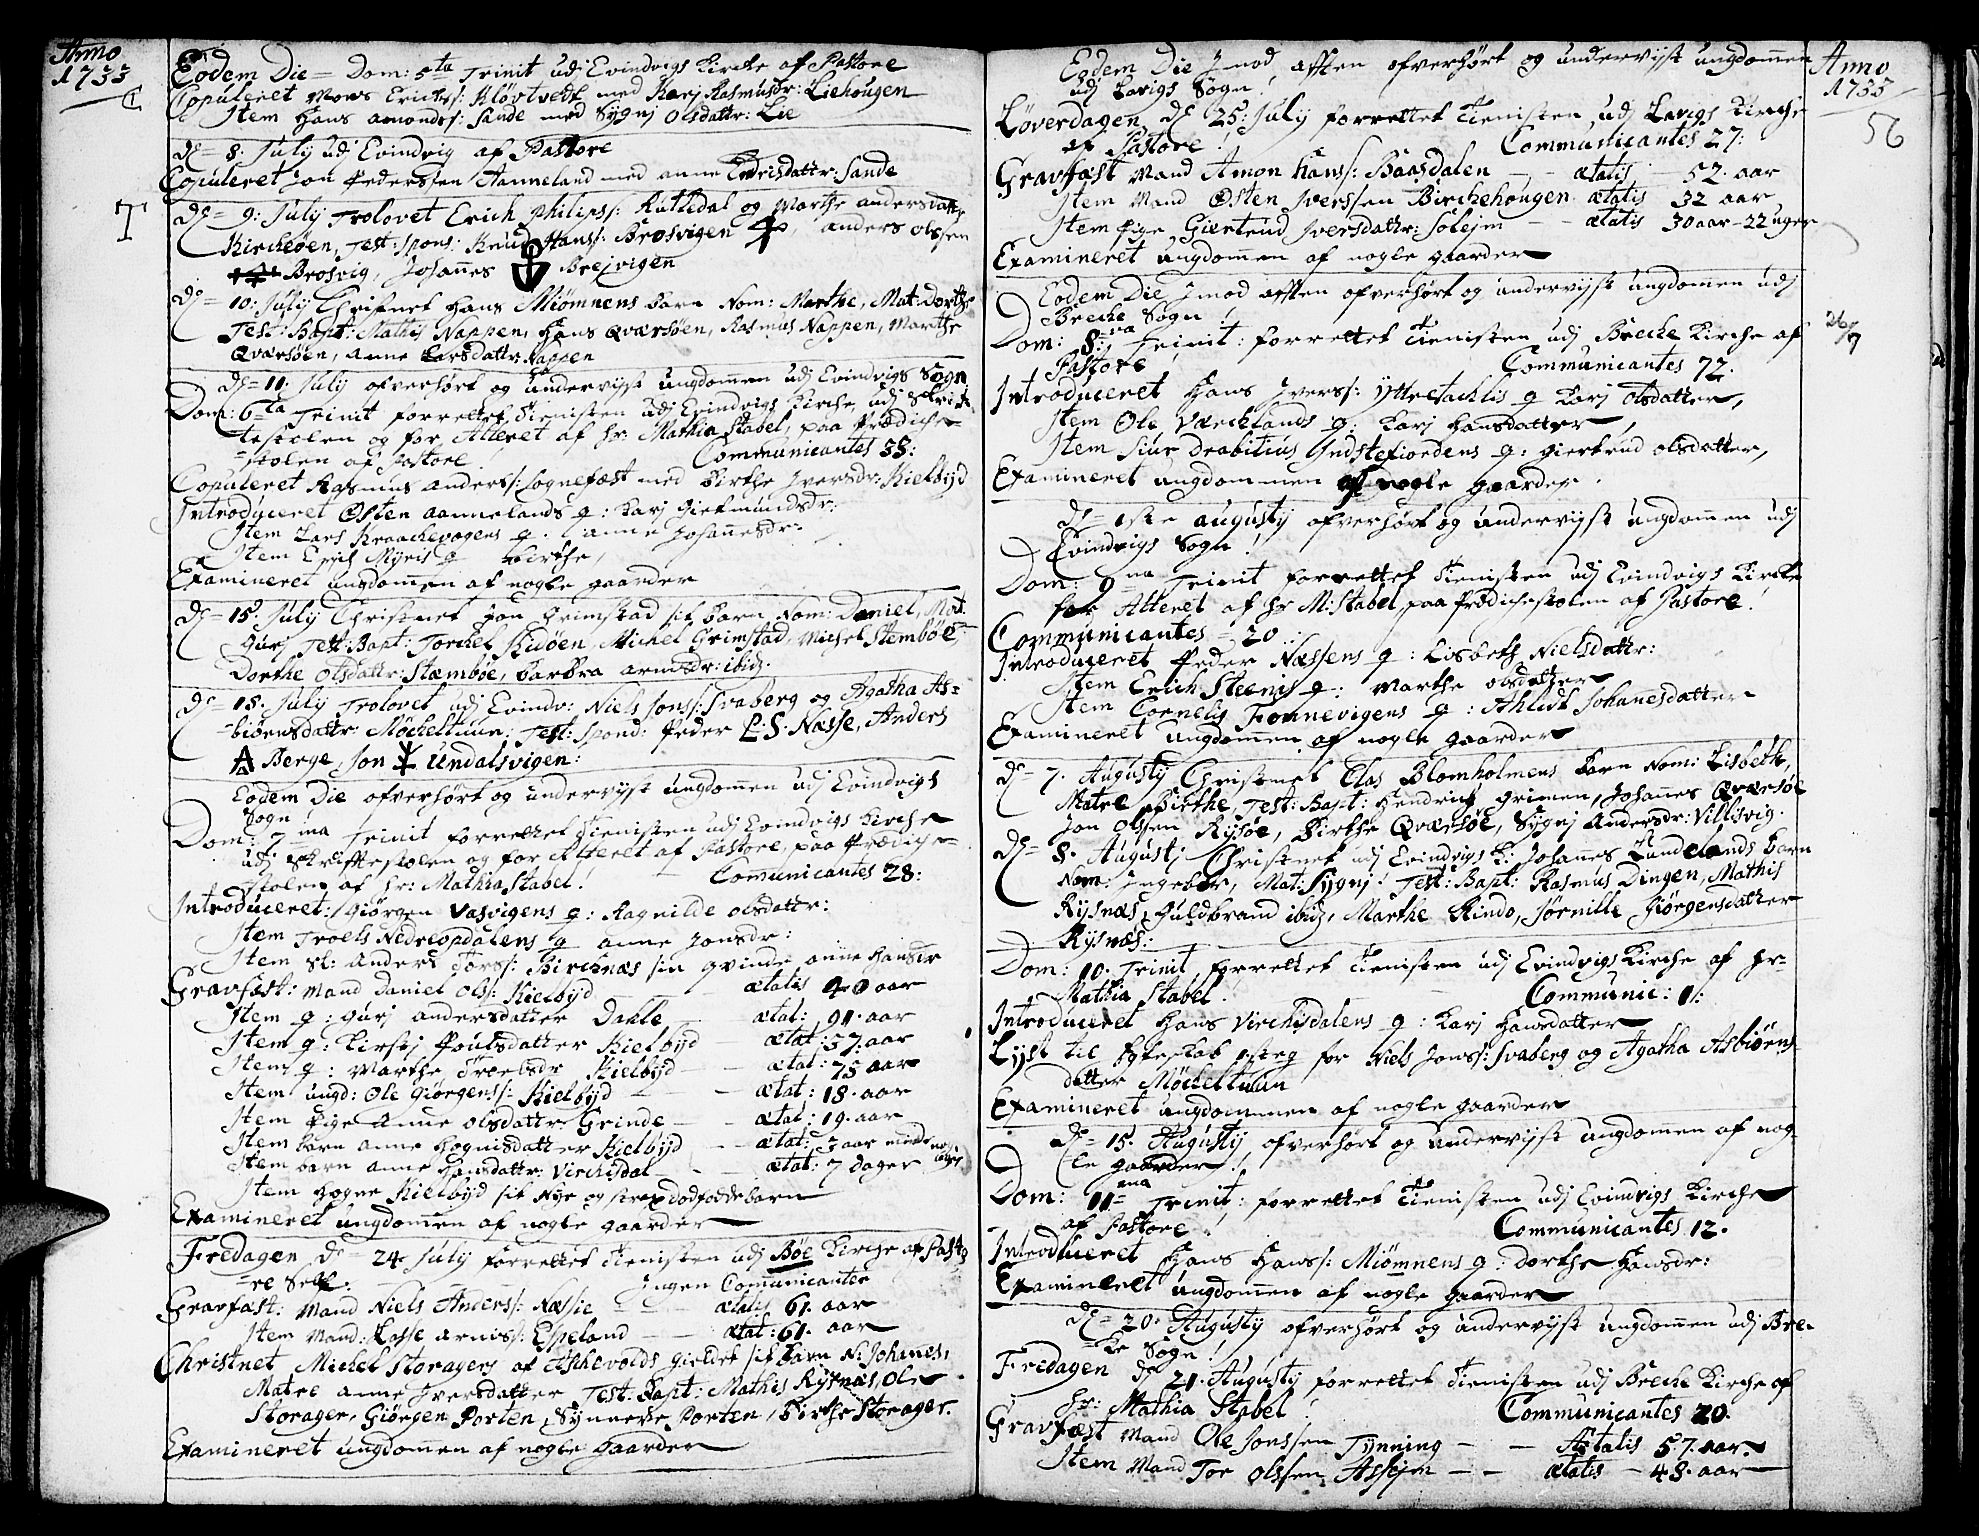 Anno
1733
Eodem Die = Dom: 5ta Trinit udj Evindvigs Kirke af Pastore
Copuleret Mons Erichs: Kløvtvedt med Karj Rasmusdr: Liehougen
Item Hans Amonds: Sande med Sygnj Olsdattr: Lie
De= 8. July udj Evindvig af Pastore
Copuleret Jon Pederssen Aanneland med Anne Endrisdattr: Sande
T
De= 9: July Trolovet Erich Philips: Ruttedal og Marthe Andersdattr
Kircheøen, Test: Spons: Knud Hans: Brosvigen, Anders Olssen
Brosvig, Johannes Brejvigen
De= 10: July Christnet Hans Miømnens barn Nom: Marthe, Mat: Dorthe
Test: Bapt: Mathis Nappen, Hans Qværsøen, Rasmus Nappen, Marthe
Qværsøen, Anne Larsdattr: Nappen
De= 11. July ofverhørt og undervijst ungdomen udj Evindvigs Sogn
Dom: 6ta Trinit forrettet Tienisten udj Evindvigs Kirche udj Skrif-
testolen og for Alteret af hr: Mathia Stabel, paa Prædiche-
=stolen af Pastore. Communicantes 38:
Copuleret Rasmus Anders: Sognefæst med Birthe Iversdr: Kielbyd
Introduceret Østen Aannelands q: Karj Giermundsdr:
Item Lars Kraachevogens q: Anne Johannesdr:
Item Erich Myris q Birthe,
Examineret ungdomen af nogle gaarder
De= 15. July Christnet Jon Grimstad sit barn Nom: Daniel, Mat:
Gurj Test: Bapt: Torchel Skiøen, Michel Grimstad, Michel Stembøe
Dorthe Olsdattr: Stæmbøe, Barbra Arnisdr: ibid.
De= 18. July Trolovet udj Evindv: Niels Jons: Svaberg og Agatha As=
=biørnsdattr: Møcheltuun, Test: Spond: Peder P.S. Næsse, Anders
A Berge, Jon Undalsvigen:
Eodem Die ofverhørt og undervijst ungdomen udj Evindvigs
Sogn
Dom: 7ma Trinit forrettet Tienisten udj Evindvigs Kirche
udj Skriftestolen og for Alteret af Pastore, paa Prædiche-
stolen af hr: Mathia Stabel! Communicantes 28:
Introduceret: Giørgen Vasvigens q: Ragnilde Olsdattr:
Item Troels Nedreopdalens q Anne Jonsdr:
Item Sl: Anders Tors: Birchnæs sin qvinde Anne Hansdr
Gravfæst: Mand Daniel Ols: Kielbyd ætatis 40 aar
Item q: Gurj Andersdatter Dahle - ætat: 91. aar
Item q: Kirstj Poulsdatter Kielbyd - ætat: 37. aar
Item q: Marthe Troelsdr Kielbyd - ætat: 75 aar
Item ungd: Ole Giørgens: Kielbyd - ætat: 18. aar
Item Pige Anne Olsdattr: Grinde - ætat: 19. aar
Item barn Anne Hognisdatter Kielbyd - ætat: 3 aar
Item barn Anne Hansdattr: Virchisdal - ætat: 7 dager
Item Hogne Kielbyd sit Nye og strax dødføddebarn
Examineret ungdomen af nogle gaarder
Fredagen de= 24 July forrettet Tienisten udj Bøe Kirche af Pasto
=re Self. Ingen Comunicanter
Gravfæst: Mand Niels Anders: Næsse - ætatis 61. aar
Item Mand: Lasse Arnis: Espeland - ætat: 61. aar
Christnet Michel Storagers af Aschevolds gieldet sit barn N: Johanes,
Matre Anne Iversdatter Test: Bapt: Mathis Rysnæs, Ole
Storager, Giørgen Porten, Synneve Porten, Birthe Storager.
Examineret ungdomen af nogle gaarder
Eodem Die Imod afften ofverhørt og undervijst ungdommen
udj Lavigs Sogn!
Anno
1733
56
Løverdagen de 25: July forrettet Tienisten udj Lavigs Kirche
af Pastore! Communicantes 27:
Gravfæst Mand Amon Hans: Baasdalen - ætatis 52. aar
Item Mand Østen Iverssen Birchehougen ætatis 32 aar
Item Pige Giertrud Iversdattr: Solejm - ætatis 30 aar - 22 uger
Examineret ungdomen af nogle gaarder
Eodem Die Imod afften ofverhørt og undervijst ungdomen udj
Breche Sogn!
26/7
Dom: 8va Trinit: forrettet Tienisten udj Breche Kirche af
Pastore! Communicantes 72.
Introduceret Hans Ivers: Yttretachlis q Karj Olsdatter,
Item Ole Værchlands q: Karj Hansdatter
Item Siur Drabitius Yndstefiordens q: Giertrud Olsdatter,
Examineret ungdommen af nogle gaarder.
De= 1ste Augustj ofverhørt og undervijst ungdomen udj
Evindvigs Sogn!
Dom: 9na Trinit forrettet Tienisten udj Evindvigs Kirche
for Alteret af hr M: Stabel, paa Prædichestolen af Pastore!
Communicantes = 20
Introduceret Peder Næssens q: Lisbeth Nielsdattr:
Item Erich Steenis q: Marthe Olsdatter
Item Cornelis Fonnevigens q: Ahlidt Johanesdatter
Examineret ungdomen af nogle gaarder
De= 7. Augustj Christnet Clas Blomholmens barn Nom: Lisbeth,
Matre Birthe, Test: Bapt: Hendrich Grimen, Johannes Qværsøe
Jon Olssen Rysøe, Birthe Qværsøe, Sygnj Andersdr: Villisvig.
De= 8. Augustj Christnet udj Evindvigs K: Johannes Lundelands barn
Nom: Ingebor, Mat: Sygnj! Test: Bapt: Rasmus Dingen, Mathis
Rysnæs, Guldbrand ibid, Marthe Rindo, Jørnille Giørgensdatter
Rysnæs:
Dom: 10. Trinit, forrettet Tienisten udj Evindvigs Kirche af hr=
Mathia Stabel. Communic: 11:
Introduceret Hans Virchisdalens q: Karj Hansdatter
Lyst til Egteskab for Niels Jons: Svaberg og Agatha Asbiørns-
datter Møcheltuun
Examineret ungdommen af nogle gaarder
De= 15. Augustj ofverhørt og undervijst ungdomen af nog-
le gaarder!
Dom: 11ma Trinit: forrettet Tienisten udj Evindvigs Kirche
af Pastore! Communicantes 12.
Introduceret Hans Hans: Miømnens q: Dorthe Hansdr:
Examineret ungdomen af nogle gaarder
De= 20. Augustj ofverhørt og undervijst ungdomen udj Bre-
=ke Sogn!
Fredagen de 21. Augustj forrettet Tienisten udj Breche Kirche af
hr: Mathia Stabel! Communicantes 20.
Gravfæst Mand Ole Jonssen Tynning - - Ætatis 57. aar
Item Mand Tor Olssen Assejm - - ætatis - 48. aar